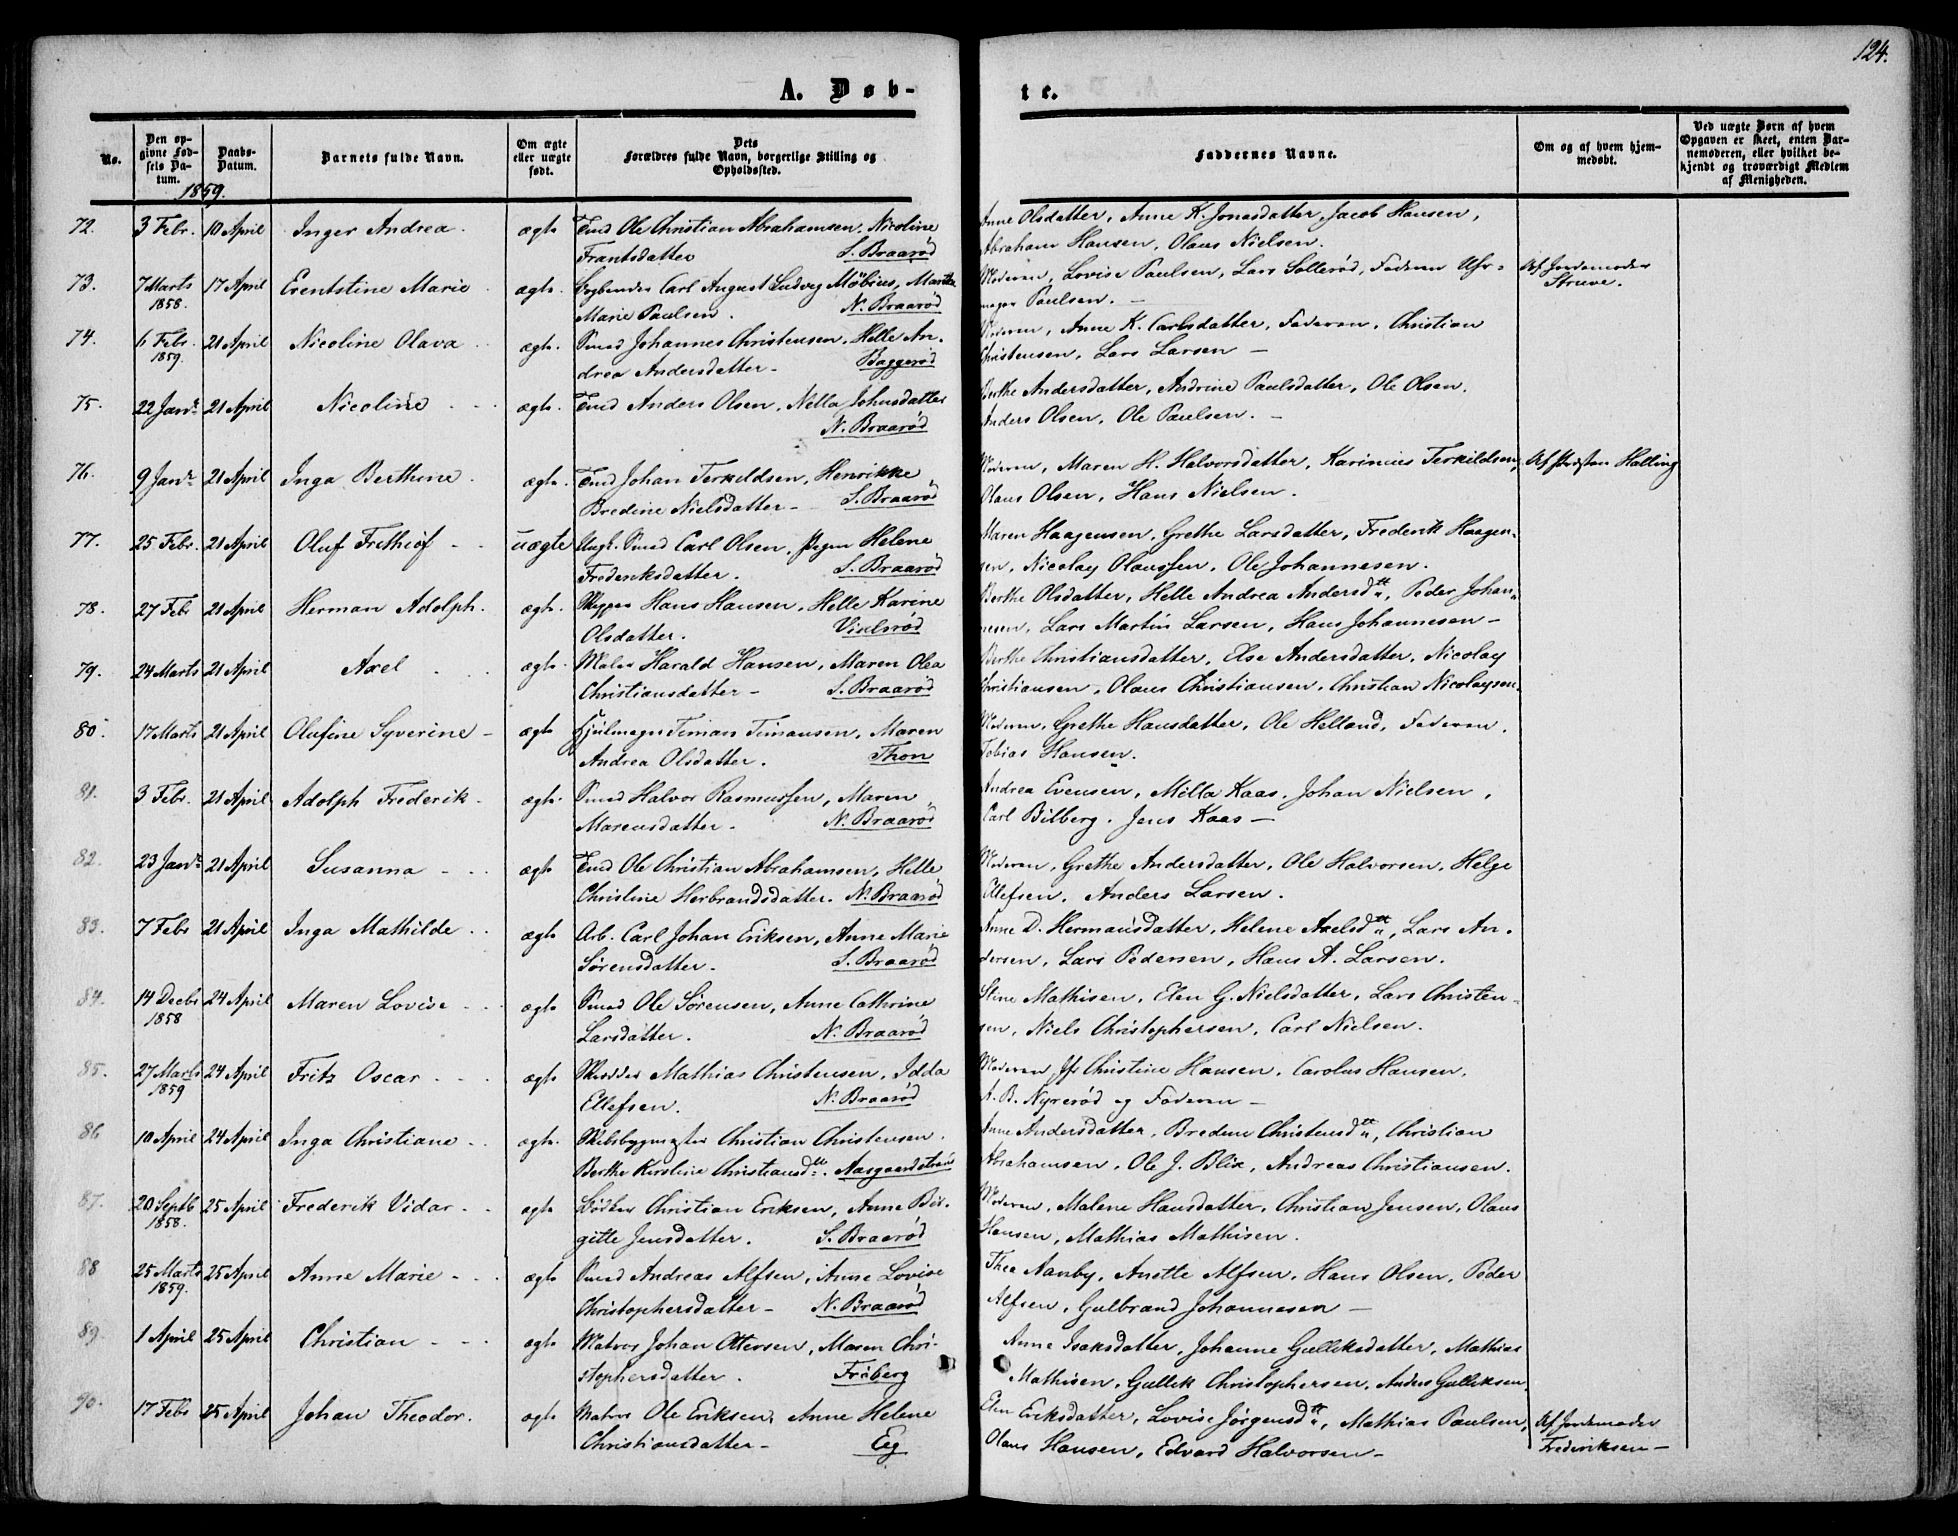 124.
A. Døb-
te.
No.
Den op-
givne Fød-
sels Da-
tum.
Daabs-
Datum.
Barnets fulde Navn.
Om ægte
eller uægte
født.
Dets
Forældres fulde Navn, borgerlige Stilling og
Opholdssted.
Faddernes Navne.
Om og af hvem hjem-
medøbt.
Ved uægte Børn af hvem
Opgaven er skeet, enten Bar-
nemoderen, eller hvilket be-
kjendt og troværdigt Medlem
af Menigheden.
1859.
72. 3 Febr. 10 April Inger Andrea. ægte Tmd Ole Christian Abrahamsen, Nicoline Anne Olsdatter, Anne K. Jonasdatter, Jacob Hansen,
Frantsdatter S. Braarød Abraham Hansen, Olaus Nielsen.
73. 7 Marts 17 April Erentstine Marie. ægte. Carl August Ludvig Möbius, Marthe Moderen, Lovise Paulsen, Lars Sollerød, Faderen Uhr- Af Jordemoder
1858. Marie Paulsen. N. Braarød mager Paulsen. — Struve.
74. 6 Febr. 21 April Nicoline Olava. ægte. Smed Johannes Christensen, Helle An- Moderen, Anne K. Carlsdatter, Faderen, Christian
1859. drea Andersdatter- Baggerød Christensen, Lars Larsen —
75. 22 Janr. 21 April Nicoline ægte. Tmd Anders Olsen, Nilla Johnsdatter Berthe Andersdatter, Andrine Paulsdatter, Ole Olsen.
N. Braarød Anders Olsen, Ole Paulsen. —
76. 9 Janr. 21 April Inga Berthine. ægte. Tmd Johan Terkeldsen, Henrikke Moderen, Maren H. Halvorsdatter, Karinius Terkildsen, Af Præsten Halling
Bredine Nielsdatter- S. Braarød Olaus Olsen, Hans Nielsen.
77. 25 Febr. 21 April Oluf Frithiof uægte Ungk. Smed Carl Olsen, Pigen Helene Maren Haagensen, Grethe Larsdatter, Frederik Haagen-
Frederiksdatter. S. Braarød sen, Nicolay Olaussen, Ole Johannesen.
78. 27 Febr 21 April Herman Adolph. ægte. Skipper Hans Hansen, Helle Karine Berthe Olsdatter, Helle Andrea Andersdtr, Peder Johan-
Olsdatter. nesen, Lars Martin Larsen, Hans Johannesen-
79. 24 Marts 21 April Axel ægte. Maler Harald Hansen, Maren Olea Berthe Christiansdatter, Else Andersdatter, Nicolay
Christiansdatter- S. Braarød Christiansen, Olaus Christiansen, Christian Nicolaysen.
80. 17 Marts 21 April Olufine Syverine- ægte Hjulmager Timan Timansen, Maren Moderen, Grethe Hansdatter, Ole Helland, Faderen,
Andrea Olsdatter. Thon Tobias Hansen.
81. 3 Febr. 21 April Adolph Frederik. ægte. Smed Halvor Rasmussen, Maren Andrea Evensen, Milla Kaas, Johan Nielsen,
Marensdatter. N. Braarød Carl Bilberg, Jens Kaas —
82. 23 Janr. 21 April Susanna ægte Tmd Ole Christian Abrahamsen, Helle Moderen, Grethe Andersdatter, Ole Halvorsen, Helge
Christine Herbrandsdatter. N. Braarød Ellefsen, Anders Larsen.
83. 7 Febr 21 April Inga Mathilde ægte Arb. Carl Johan Eriksen, Anne Marie Anne D. Hermansdatter, Helene Axelsdtr, Lars An-
Sørensdatter. S. Braarød dersen, Lars Pedersen, Hans A. Larsen.
84. 14 Decbr 24 April Maren Lovise ægte Smed Ole Sørensen, Anne Cathrine Stine Mathisen, Elen G. Nielsdatter, Lars Christen-
1858 Larsdatter. N. Braarød sen, Niels Christophersen, Carl Nielsen.
85. 27 Marts 24 April Fritz Oscar ægte Skrædder Mathias Christensen, Idda Moderen, Jfr Christine Hansen, Carolus Hansen,
1859 Ellefsen. N. Braarød A. B. Nyrerød og Faderen —
86 10 April 24 April Inga Christiane ægte. Skibsbygmester Christian Christensen, Anne Andersdatter, Bredine Christensdtr, Christian
Berthe Kirstine Christiansdtr. Aasgaardstrand Abrahamsen, Ole J. Blix, Andreas Christiansen.
87. 20 Septb 25 April Frederik Vidar ægte Bødker Christian Eriksen, Anne Bir- Moderen, Malene Hansdatter, Christian Jensen, Olaus
1858. gitte Jensdatter. S. Braarød Hansen, Mathias Mathisen.
88 25 Marts 25 April Anne Marie ægte Smed Andreas Alfsen, Anne Lovise Thea Aanby, Anette Alfsen, Hans Olsen, Peder
1859. Christophersdatter- N. Braarød Alfsen, Gulbrand Johannesen —
89. 1 April 25 April Christian ægte Matros Johan Ottersen, Maren Chri- Anne Isaksdatter, Johanne Gulliksdatter, Mathias
stophersdatter. Frøberg Mathisen, Gullik Christophersen, Anders Gulliksen.
90. 17 Febr 25 April Johan Theodor. ægte Matros Ole Eriksen, Anne Helene Elen Eriksdatter, Lovise Jørgensdtr, Mathias Paulsen, Af Jordemoder
Christiansdatter- Eeg Olaus Hansen, Edvard Halvorsen — Frederiksen —